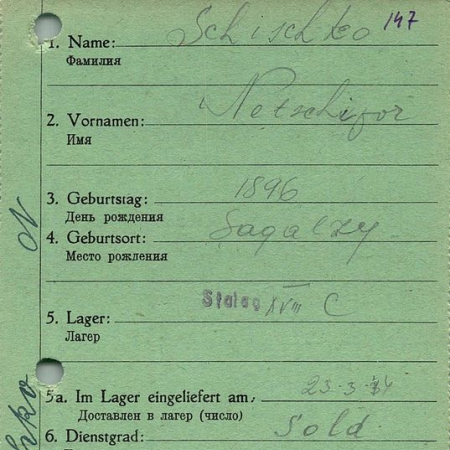 147
1. Name: Schischko
Фамилия
2. Vornamen: Netschifor
Имя
3. Geburtstag: 1896
День рождения
4. Geburtsort: Sagalzy
Место рождения
5. Lager: Stalag XVIII C
Лагер
5a. Im Lager eingeliefert am:
Доставлен в лагер (число)
6. Dienstgrad: Sold.